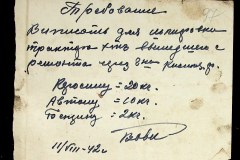 Требование
Выписать для исправления
трактора ктз вышедшего с
ремонта через
Керосину = 20 кг.
Автолу = 10 кг.
Бензину = 2 кг.
11/VIII-42г